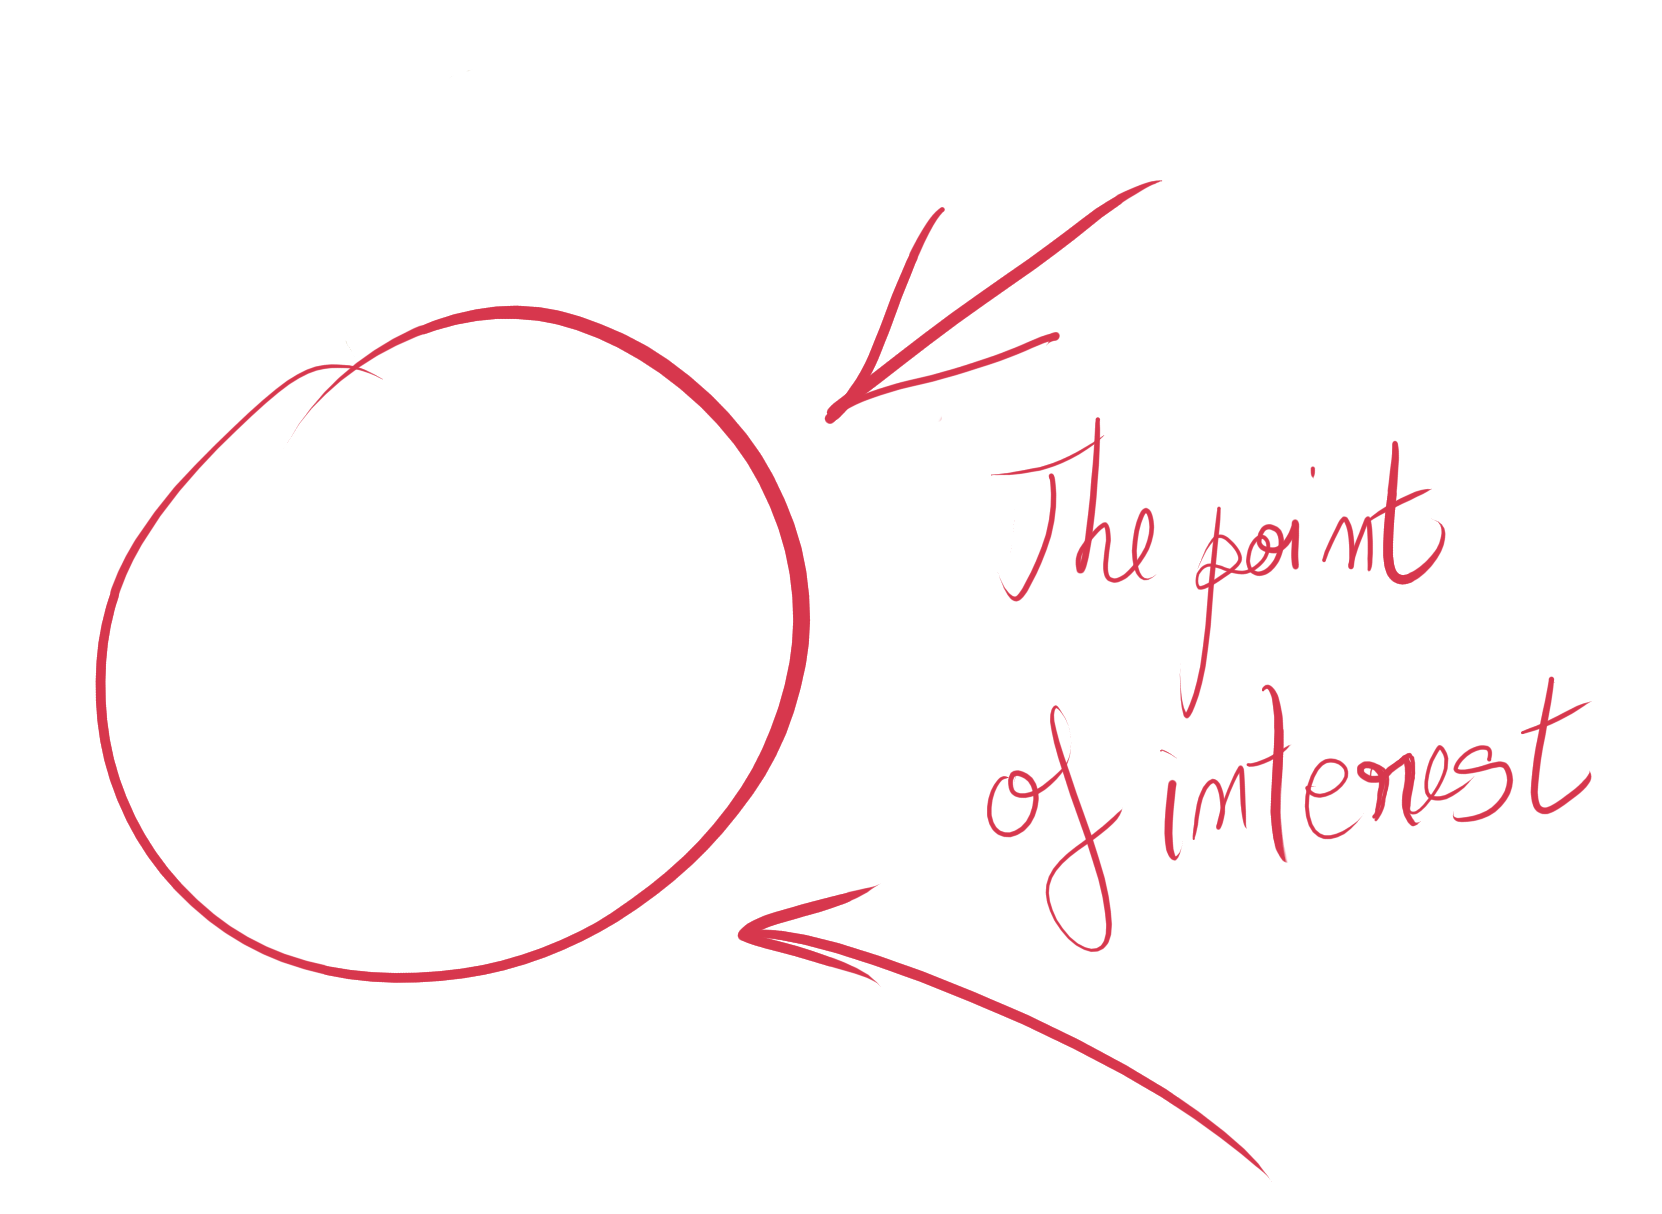 The point
of interest